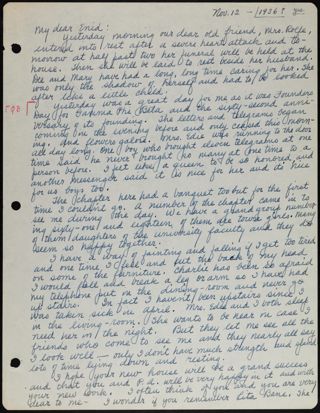 Nov. 12 - 1936? Ype.
My dear Enid:
Yesterday morning our dear old friend, Mrs. Rolfe,
entered into rest after a severe heart attack and to-
morrow at half past two her funeral will be held at the
house. Then she will be laid to rest beside her husband.
Bee and Mary have had a long, long time caring for her. She
was only the shadow of herself and had to be looked
after like a little child.
ΓΦΒ Yesterday was a great day for me as it was Founders
Day for Gamma Phi Beta and the sixty-second anni-
versary of its founding. The letters and telegrams began
coming on the evening before and only ceased this morn-
ing. And flowers galore. Mrs. Sile was running to the door
all day long. One boy who brought eleven telegrams at one
time said he never brought so many at one time to a
person before. I felt like a queen to be so honored, and
another messenger said it is nice for her and it's nice
for us boys too.
The chapter here had a banquet too but for the first
time I couldn't go. A number of the chapter came in to
see me during the day. We have a grand group number-
ing sixty-one and eighteen of them are town girls. Many
of them daughters of the university faculty and they do
seem so happy together.
I have a way of fainting and falling if I get too tired
and one time I fell and cut the back of my head
on some of the furniture. Charles has been so afraid
I would fall and break a leg or arm so I have had
my telephone put in the dining-room and never go
up stairs. In fact I haven't been upstairs since I
was taken sick in April. Mrs. Sile and I both sleep
in the living-room. She wants to be near in case I
need her in the night. But they let me see all the
friends who come to see me and they nearly all say
I look well — only I don't have much strength and spend
lots of time lying down and resting.
I hope your new house will be a grand success
and that you and F. A. will be very happy in it and with
your new work. I often think of you and you are very
dear to me. I wonder if you remember Cita Bane. She